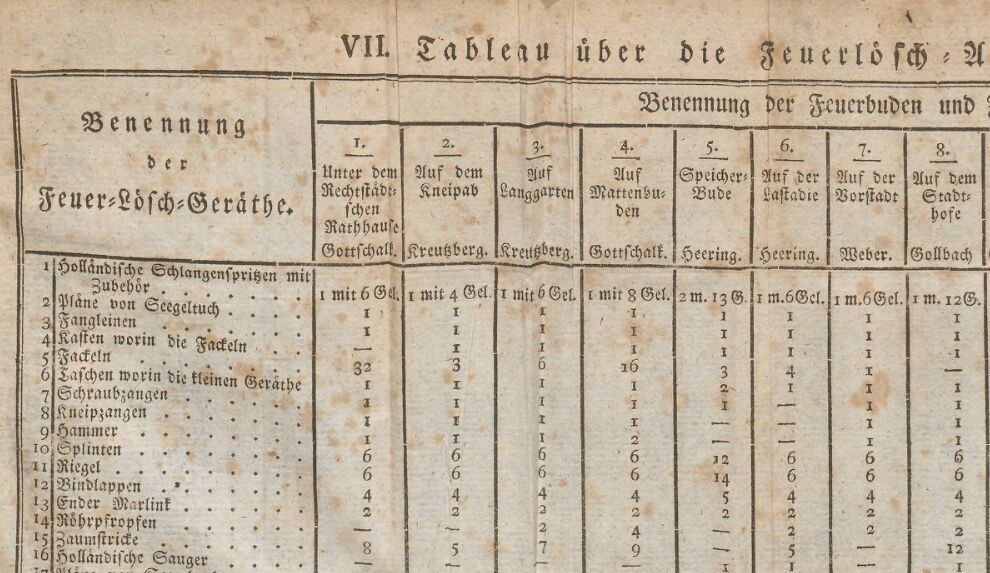 VII. Tableau über die Feuerlösch-A
Benennung
der
Feuer-Lösch-Geräthe.
Benennung der Feuerbuden und
1.
Unter dem
Rechtstädt-
schen
Rathhause
Gottschalk.
2.
Auf dem
Kneipab
Kreutzberg.
3.
Auf
Langgarten
Kreutzberg.
4.
Auf
Mattenbu-
den
Gottschalk.
5.
Speicher-
Bude
Heering.
6.
Auf der
Lastadie
Heering.
7.
Auf der
Vorstadt
Weber.
8.
Auf dem
Stadt-
hofe
Gollbach
1 Holländische Schlangenspritzen mit
Zubehör . . . . . . 1 mit 6 Gel. 1 mit 4 Gel. 1 mit 6 Gel. 1 mit 8 Gel. 2 m. 13 G. 1 m. 6 Gel. 1 m. 6 Gel. 1 m. 12 G.
2 Pläne von Seegeltuch . . . . 1 1 1 1 1 1 1 1
3 Fangleinen . . . . . . 1 1 1 1 1 1 1 1
4 Kasten worin die Fackeln . . . — 1 1 1 1 1 1 1
5 Fackeln . . . . . . 32 3 6 16 3 4 1 —
6 Taschen worin die kleinen Geräthe 1 1 1 1 2 1 1 1
7 Schraubzangen . . . . . 1 1 1 1 1 — 1 1
8 Kneipzangen . . . . . . 1 1 1 1 — — 1 1
9 Hammer . . . . . . 1 1 1 2 — — 1 1
10 Splinten . . . . . . 6 6 6 6 12 6 6 6
11 Riegel . . . . . . 6 6 6 6 14 6 6 6
12 Bindlappen . . . . . . 4 4 4 4 5 4 4 4
13 Ender Marlink . . . . . 2 2 2 2 2 2 2 2
14 Röhrpfropfen . . . . . — — 2 4 — 2 2 2
15 Zaumstricke . . . . . . 8 5 7 9 — 5 — 12
16 Holländische Sauger . . . . — — — — 1 1 — 1